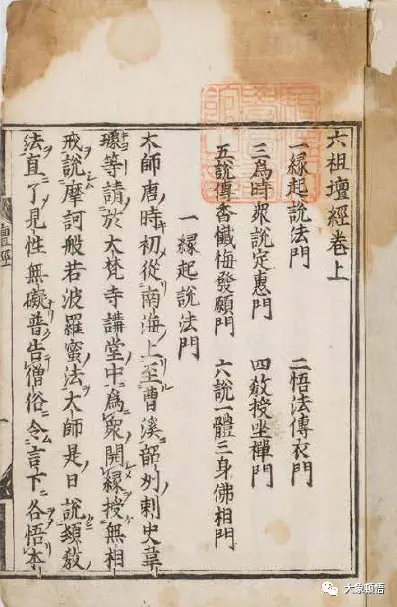 六祖壇經卷上
一緣起說法門 二悟法傳衣門
三爲時衆說定惠門 四教授坐禪門
五說傳香懺悔發願門 六說一體三身佛相門
一緣起說法門
大師唐時初從南海上至曹溪韶州刺史韋
璩等請於大梵寺講堂中爲衆開緣授無相
戒說摩訶般若波羅蜜法大師是日說頓教
法直了見性無礙普告僧俗令言下各悟本
壇經
大象頓悟